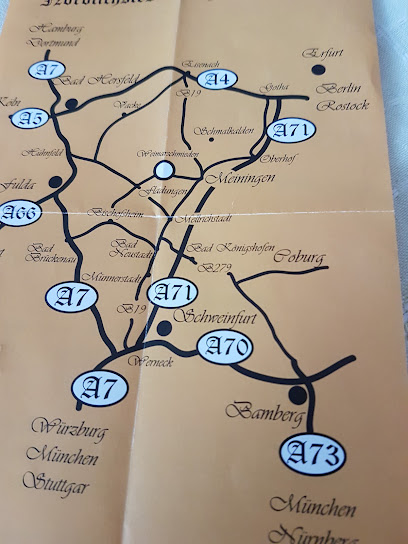 Hamburg
Dortmund
Erfurt
A7
Eisenach
Bad Hersfeld
A4
Gotha
Berlin
B19
Rostock
Köln
Vacha
A5
A71
Schmalkalden
Hühnfeld
Weimarschmieden
Oberhof
Fulda
Fladungen
Meiningen
A66
Bischofsheim
Mellrichstadt
Bad
Brückenau
Bad
Neustadt
Bad Königshofen
Coburg
B279
Münnerstadt
A7
A71
B19
Schweinfurt
A70
Werneck
A7
Bamberg
Würzburg
München
Stuttgar
A73
München
Nürnberg